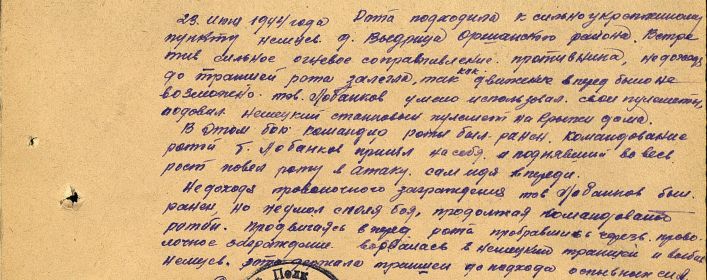 23 Июня 1944 года Рота подходила к сильно укрепленному
пункту немцев д. Выдрица Оршанского района. Встре
тив сильное огневое сопротивление противника, недоходя
до траншей рота залегла, так как движение вперед было не
возможно. тов. Лобанков умело использовал свои пулеметы,
подавил немецкий станковый пулемет на крыши дома.
В этом бою командир роты был ранен. Командование
ротой т. Лобанков принял на себя и поднявшись во весь
рост повел роту в атаку. сам идя впереди.
Недоходя проволочного заграждения тов Лобанков был
ранен, но неушол споля боя, продолжая командовать
ротой. продвигаясь вперед рота пробравшись через прово-
лочное заграждение ворвалась в немецкий траншеи и
немцев. рота держала траншеи до подхода основных сил
Полк